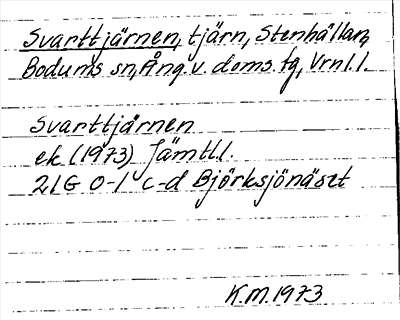 Svarttjärnen, tjärn, Stenhällan,
Bodums sn, Ång. v. doms. fg, Vrnl. l.
Svarttjärnen
ek (1973) Jämtl l.
21G 0-1 c-d Björksjönäset
K.M. 1973